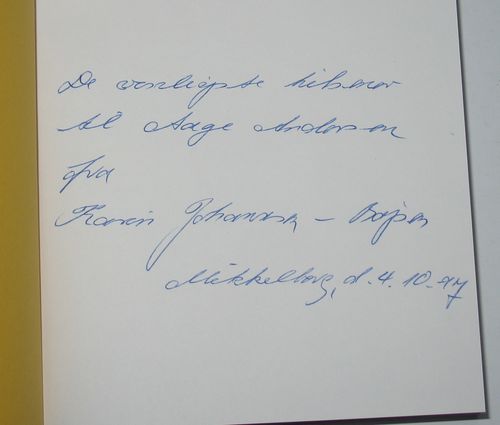 De venligste hilsener
til Aage Andersen
fra
Karin Johannsen - Bojsen
Mikkelborg, d. 4.10.97